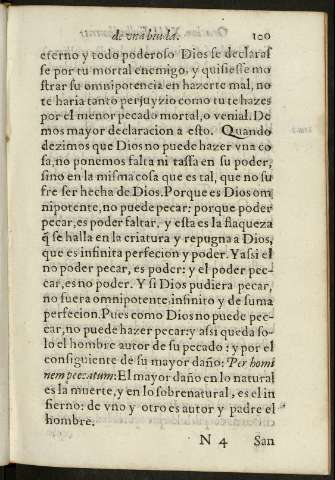 de vna biuda. 120
eterno y todo poderoso Dios se declaras
se por tu mortal enemigo, y quisiesse mo
strar su omnipotencia en hazerte mal, no
te haria tanto perjuyzio como tu te hazes
por el menor pecado mortal, o venial. De
mos mayor declaracion a esto. Quando
dezimos que Dios no puede hazer vna co
sa, no ponemos falta ni tassa en su poder,
sino en la misma cosa que es tal, que no su
fre ser hecha de Dios. Porque es Dios om
nipotente, no puede pecar: porque poder
pecar, es poder faltar, y esta es la flaqueza
q̃ se halla en la criatura y repugna a Dios,
que es infinita perfecion y poder. Y assi el
no poder pecar, es poder: y el poder pec-
car, es no poder. Y si Dios pudiera pecar,
no fuera omnipotente, infinito y de suma
perfecion. Pues como Dios no puede pec-
car, no puede hazer pecar: y assi queda so-
lo el hombre autor de su pecado: y por el
consiguiente de su mayor daño: Per homi
nem peccatum: El mayor daño en lo natural
es la muerte, y en lo sobrenatural, es el in
fierno: de vno y otro es autor y padre el
hombre.
N 4 San